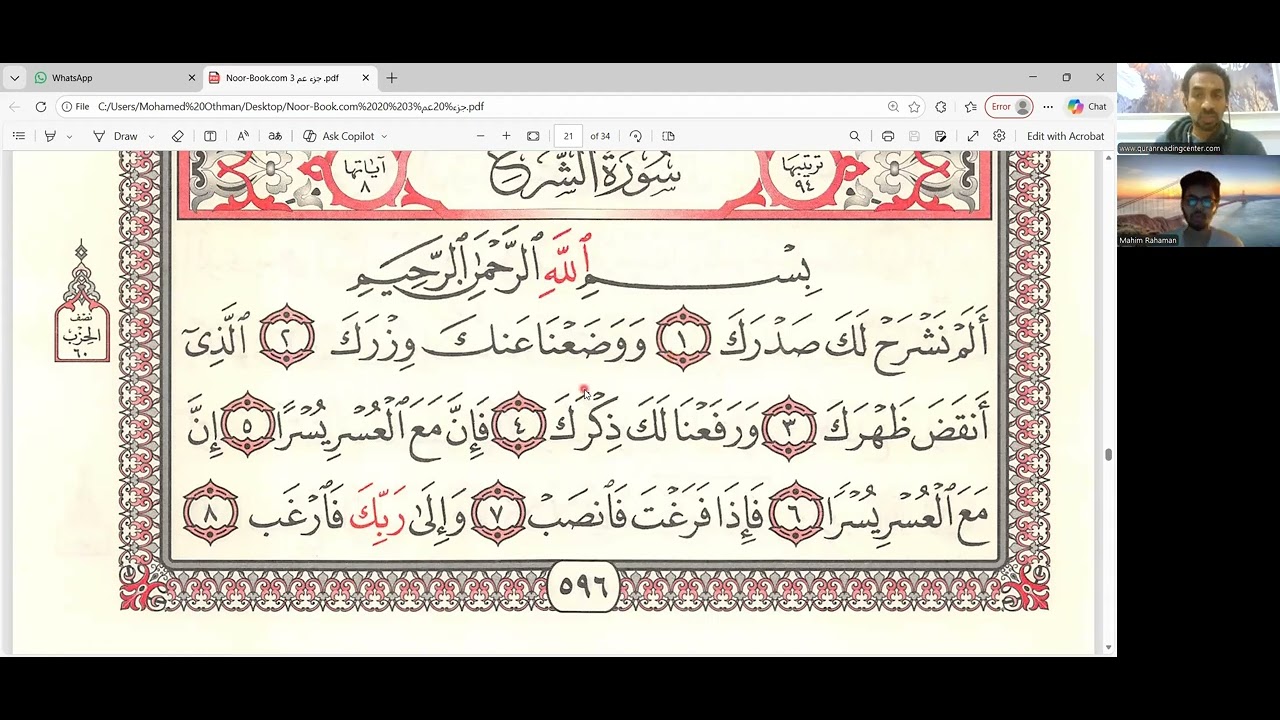 WhatsApp
Noor-Book.com جزء عم 3 .pdf
File C:/Users/Mohamed%20Othman/Desktop/Noor-Book.com%2020%203%جزء%20عم.pdf
Error
Chat
Draw
Ask Copilot
21 of 34
Edit with Acrobat
ترتيبها ٩٤
سُورَةُ الشَّرْحِ
آياتها ٨
بِسْمِ ٱللَّهِ ٱلرَّحْمَٰنِ ٱلرَّحِيمِ
أَلَمْ نَشْرَحْ لَكَ صَدْرَكَ ١ وَوَضَعْنَا عَنكَ وِزْرَكَ ٢ ٱلَّذِىٓ
أَنقَضَ ظَهْرَكَ ٣ وَرَفَعْنَا لَكَ ذِكْرَكَ ٤ فَإِنَّ مَعَ ٱلْعُسْرِ يُسْرًا ٥ إِنَّ
مَعَ ٱلْعُسْرِ يُسْرًا ٦ فَإِذَا فَرَغْتَ فَٱنصَبْ ٧ وَإِلَىٰ رَبِّكَ فَٱرْغَب ٨
نصف
الحزب
٦٠
٥٩٦
www.quranreadingcenter.com
Mahim Rahaman